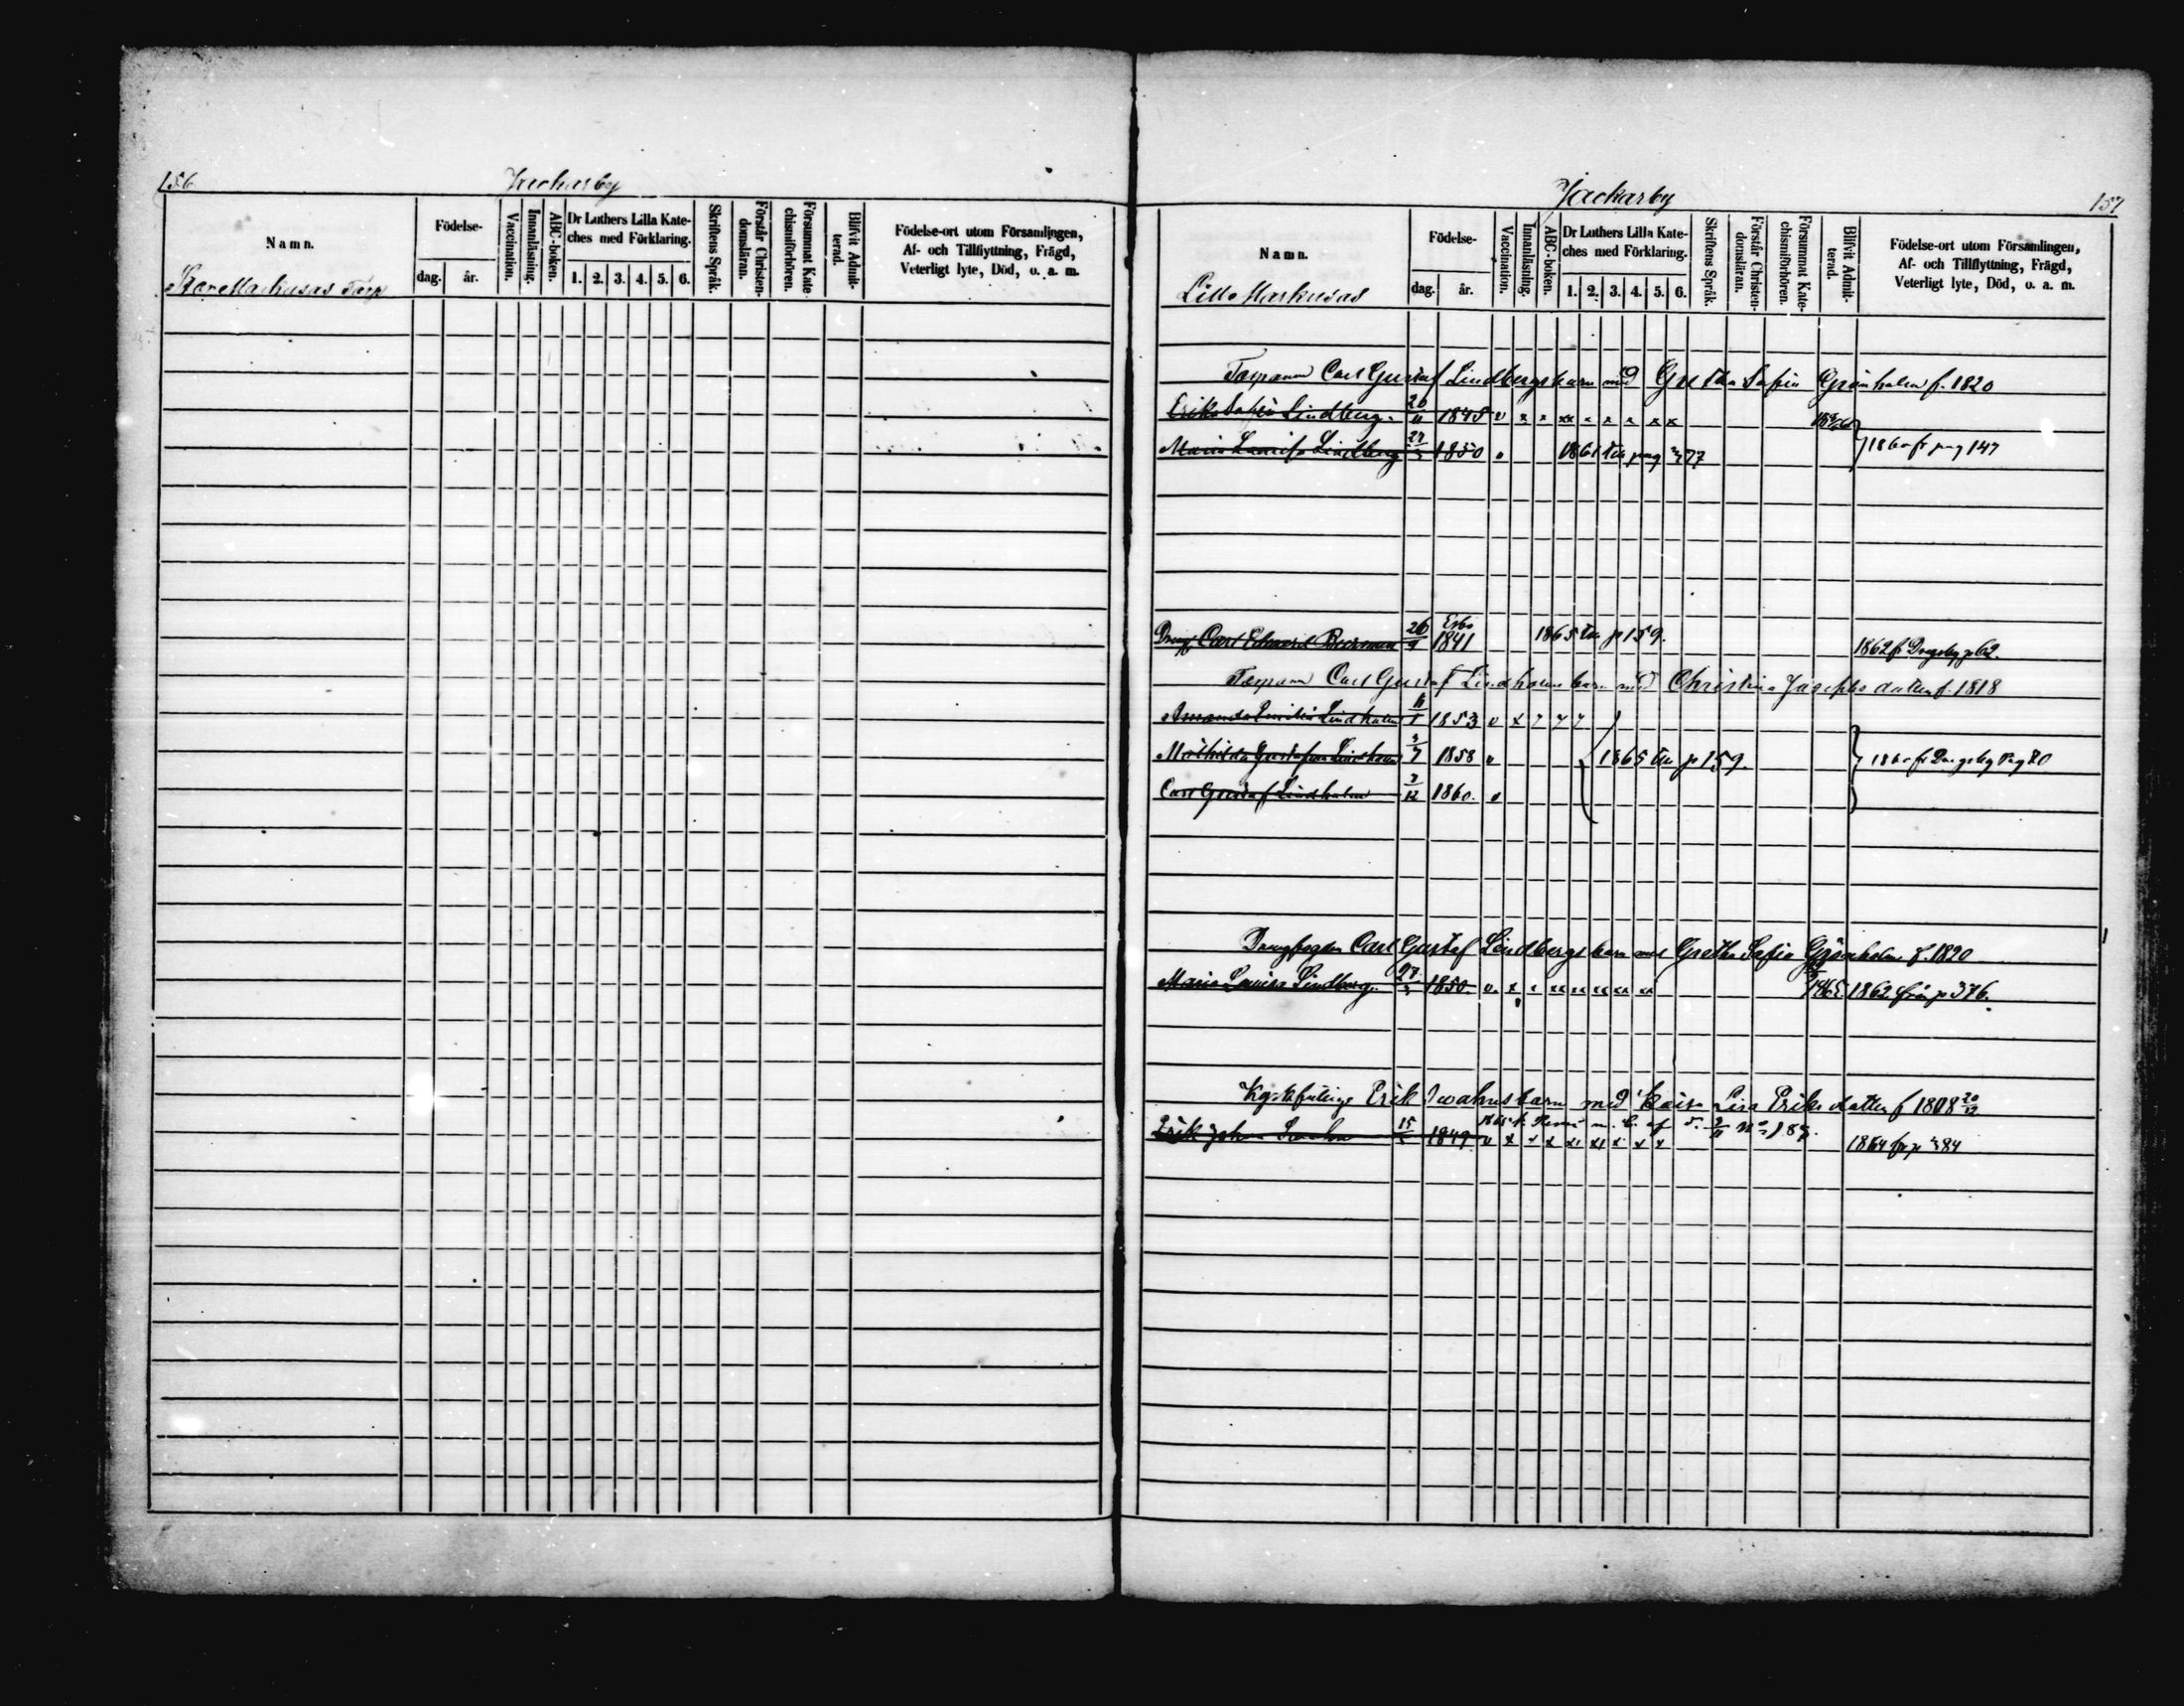 156
Jackarby
Namn.
Födelse-
dag. år.
Vaccination.
Innanläsning.
ABC-boken.
Dr Luthers Lilla Kate-
ches med Förklaring.
1. 2. 3. 4. 5. 6.
Skriftens Språk.
Förstår Christen-
domsläran.
Försummat Kate-
chismiförhören.
Blifvit Admit-
terad.
Födelse-ort utom Församlingen,
Af- och Tillflyttning, Frägd,
Veterligt lyte, Död, o. a. m.
Torp
Jackarby
157
Namn.
Födelse-
dag. år.
Vaccination.
Innanläsning.
ABC-boken.
Dr Luthers Lilla Kate-
ches med Förklaring.
1. 2. 3. 4. 5. 6.
Skriftens Språk.
Förstår Christen-
domsläran.
Försummat Kate-
chismiförhören.
Blifvit Admit-
terad.
Födelse-ort utom Församlingen,
Af- och Tillflyttning, Frägd,
Veterligt lyte, Död, o. a. m.
Lilla Markusas
Carl Gustaf Lindbergs barn med Gretha Sofia Grönholm f. 1820
Erika Sofia Lindberg 20/11 1845 v x x xx x x x x x
Maria Lovisa Lindberg 1850 v 1861 till pag 377 1860 fr pag 147
Esbo
Dreng Carl Edvard 26/9 1841 1865 till p 159. 1862 fr p 62.
Carl Gustaf Lindholms barn med Christina Josephsdotter f. 1818
Amanda Emilia Lindholm 1853 v x
Mathilda Gustafva Lindholm 3/7 1858 v 1865 till p 159. 1860 fr pag 80
Carl Gustaf Lindholm 1860. v
Carl Gustaf Lindbergs barn med Gretha Sofia Grönholm f. 1820
Maria Lovisa Lindberg 1850. v. x x xx xx xx xx xx 1865 1862 från p 376.
Erik Iwahns barn med Kaisa Lisa Eriksdotter f 1808 20/12
Erik Johan Iwahn 15 1849 v x x x x x x x x 1864 fr p 384